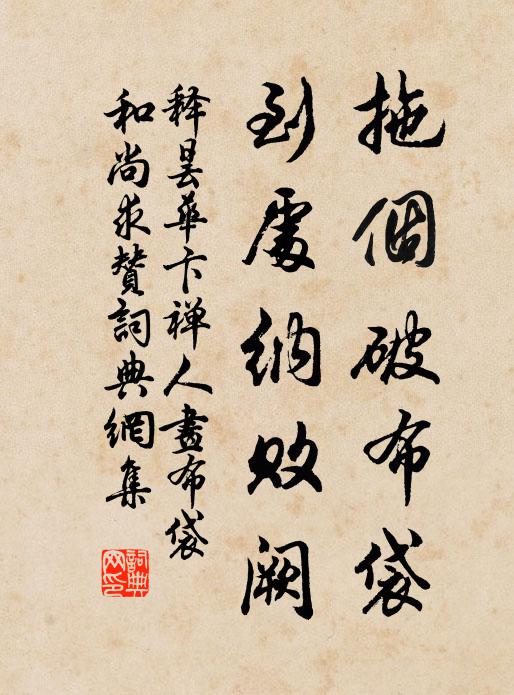 拖個破布袋
到處納敗闕
释曇華卞禅人畫布袋
和尚求贊詞典網集
詞典
网印